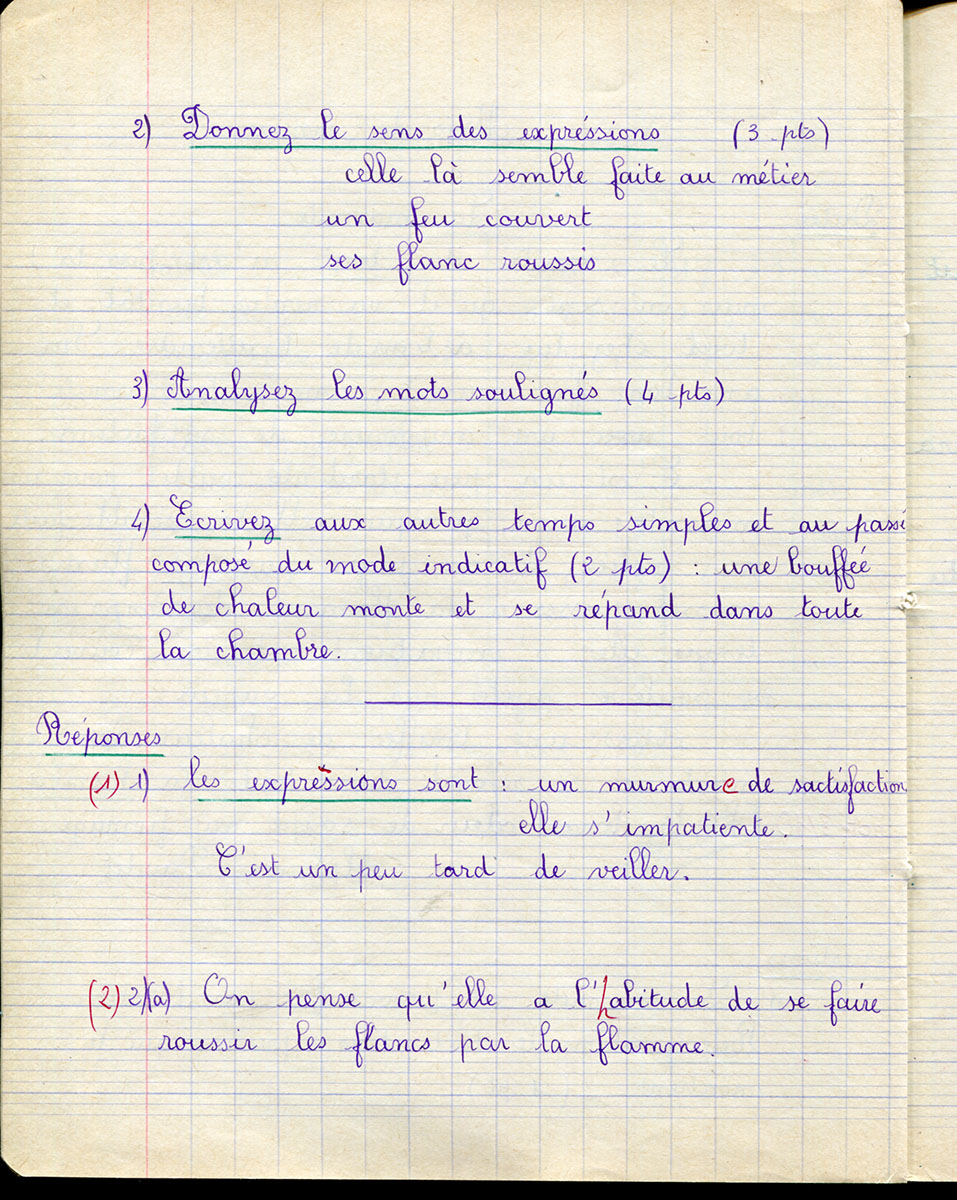 2) Donnez le sens des expréssions (3 pts)
celle là semble faite au métier
un feu couvert
ses flanc roussis
3) Analysez les mots soulignés (4 pts)
4) Ecrivez aux autres temps simples et au passé
composé du mode indicatif (2 pts) : une bouffée
de chaleur monte et se répand dans toute
la chambre.
Réponses
(1) 1) les expressions sont : un murmure de sactisfaction
elle s'impatiente.
C'est un peu tard de veiller.
(2) 2)(a) On pense qu'elle a l'habitude de se faire
roussir les flancs par la flamme.